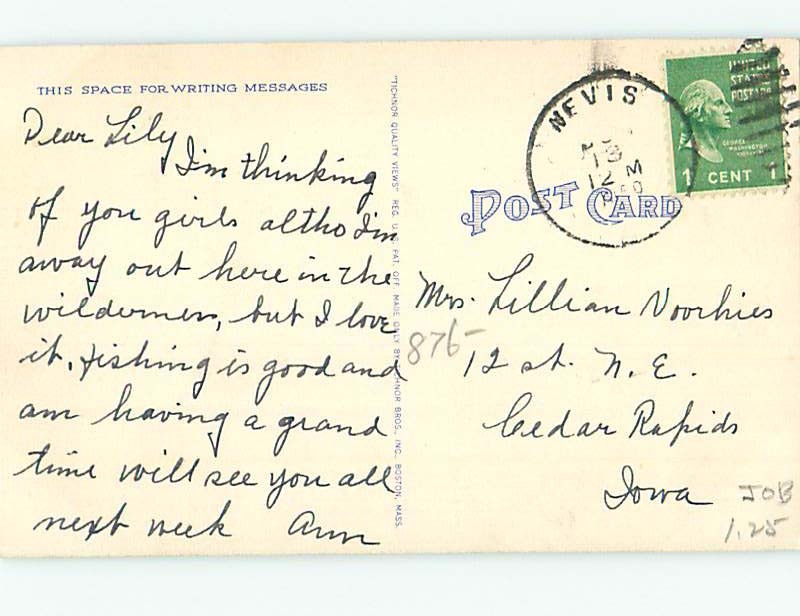 THIS SPACE FOR WRITING MESSAGES
Dear Lily
I'm thinking
of you girls altho I'm
away out here in the
wilderness, but I love
it. Fishing is good and
am having a grand
time will see you all
next week Ann
"TICHNOR QUALITY VIEWS" REG. U. S. PAT. OFF. MADE ONLY BY TICHNOR BROS., INC., BOSTON, MASS.
NEVIS
13
12 M
UNITED
STATES
POSTAGE
GEORGE
WASHINGTON
1 CENT 1
POST CARD
Mrs. Lillian Voorhies
876-
12 st. N. E.
Cedar Rapids
Iowa
JOB
1.25